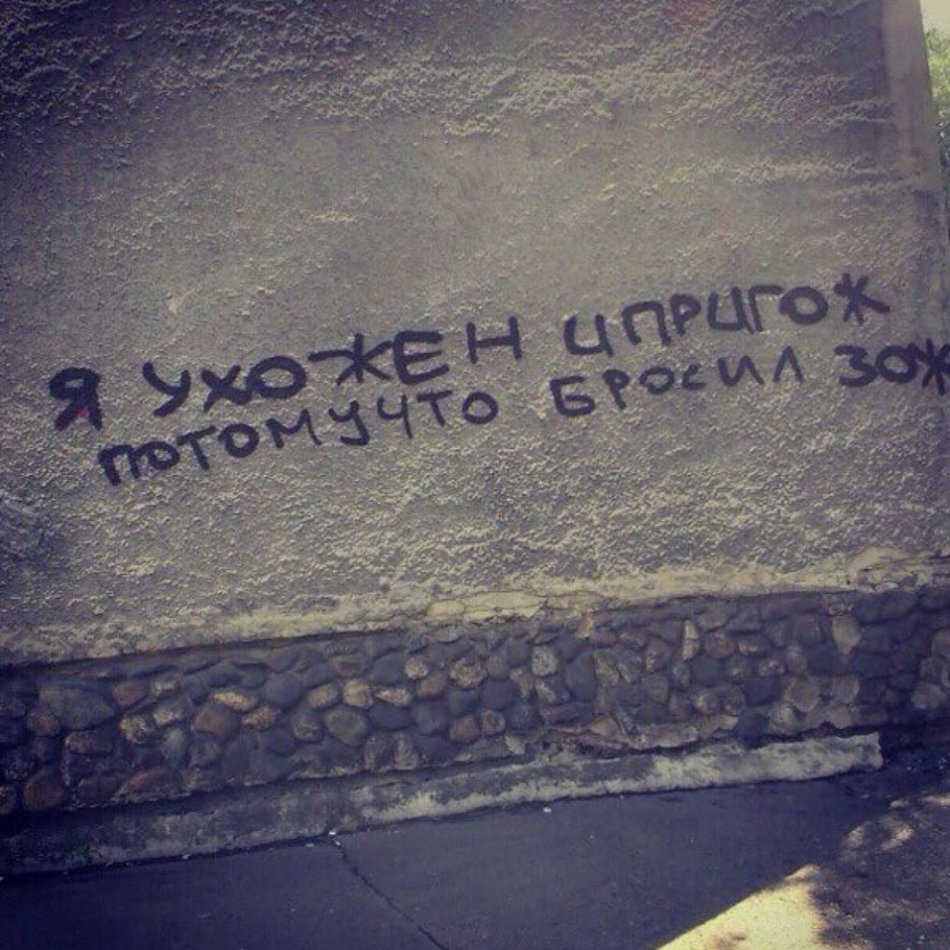 Я УХОЖЕН И ПРИГОЖ
ПОТОМУЧТО БРОСИЛ ЗОЖ